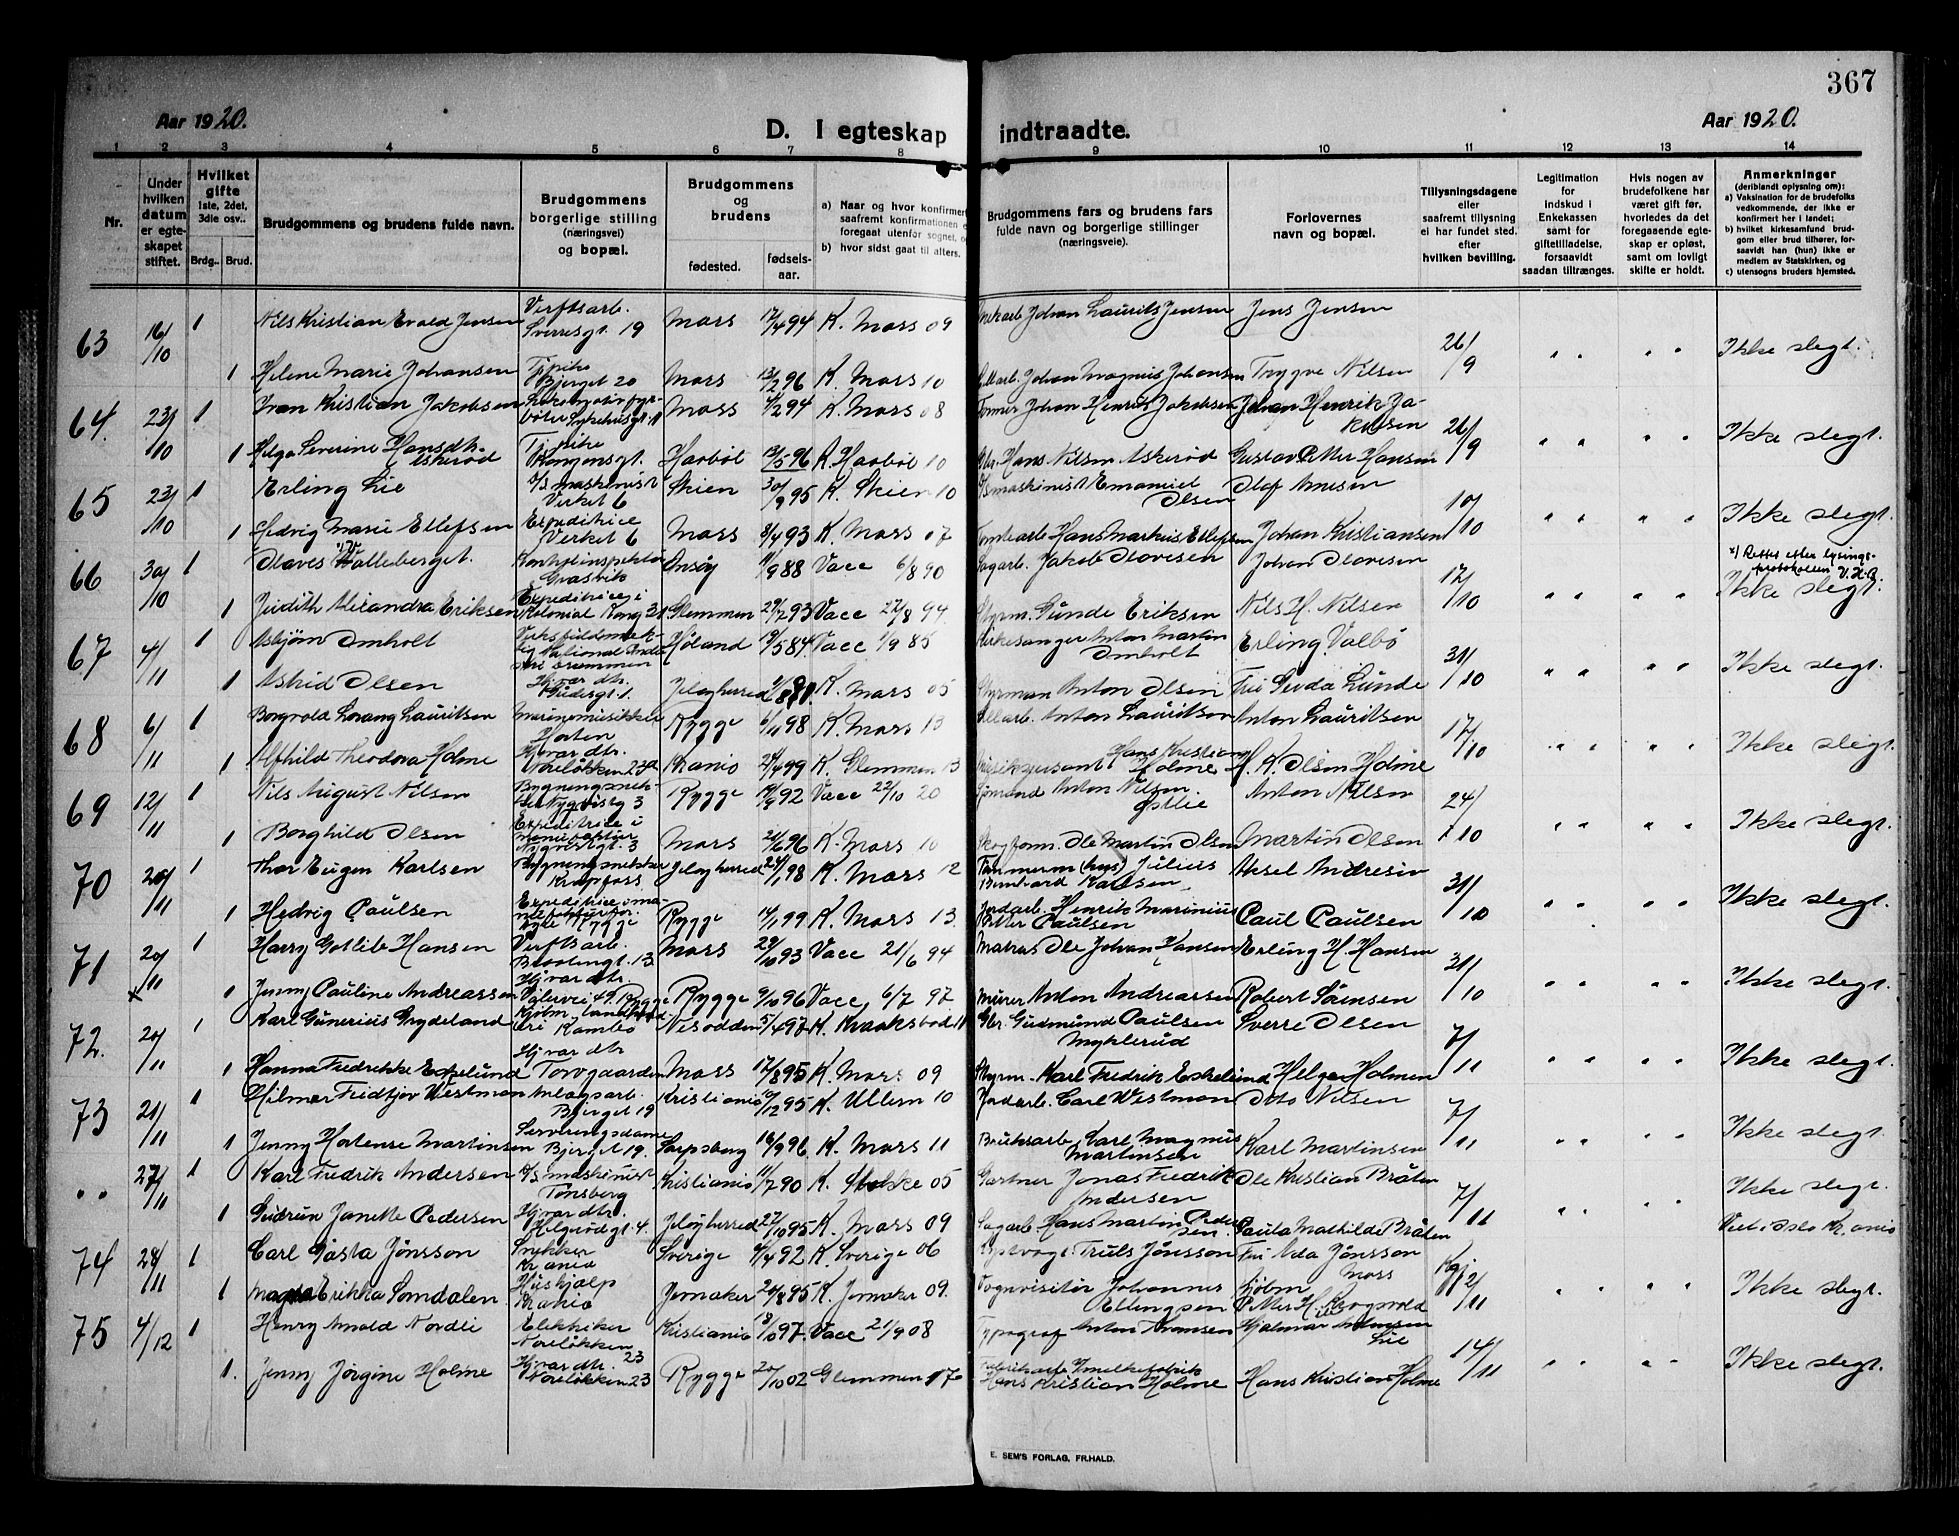 367
Aar 1920.
D. I egteskap indtraadte.
Aar 1920.
1 2 3 4 5 6 7 8 9 10 11 12 13 14
Nr.
Under hvilken datum er egteskapet stiftet.
Hvilket gifte 1ste, 2det, 3die osv..
Brdg.. Brud.
Brudgommens og brudens fulde navn.
Brudgommens borgerlige stilling (næringsvei) og bopæl.
Brudgommens og brudens
fødested. fødselsaar.
a) Naar og hvor konfirmert
saafremt konfirmationen
foregaat utenfor sognet,
b) hvor sidst gaat til alters.
Brudgommens fars og brudens fars fulde navn og borgerlige stillinger (næringsveie).
Forlovernes navn og bopæl.
Tillysningsdagene eller saafremt tillysning ei har fundet sted, efter hvilken bevilling.
Legitimation for indskud i Enkekassen samt for giftetilladelse, forsaavidt saadan tiltrænges.
Hvis nogen av brudefolkene har været gift før, hvorledes da det foregaaende egteskap er opløst, samt om lovligt skifte er holdt.
Anmerkninger
(deriblandt oplysning om):
a) Vaksination for de brudefolks vedkommende, der ikke er konfirmert her i landet;
b) hvilket kirkesamfund brudgom eller brud tilhører, forsaavidt han (hun) ikke er medlem av Statskirken, og
c) utensogns bruders hjemsted.
63 16/10 1 Nils Kristian Evald Jensen Verftsarb. Sverresgt. 19 Moss 17/4 94 K. Moss 09 Johan Laurits Jensen Jens Jensen 26/9 " " " " Ikke slegt.
1 Helene Marie Johansen Bjerget 20 Moss 13/2 96 K. Moss 10 Johan Magnus Johansen Trygve Nilsen
64. 23/10 1 Ivan Kristian Jakobsen Moss 4/2 94 K. Moss 08 Johan Henrik Jakobsen Johan Henrik Jakobsen 26/9 " " " " Ikke slegt.
1 Helga Severine Hansdtr. Askerød Kongensgt. Haabøl 13/5 96 K. Haabøl 10 Gbr. Hans Nilsen Askerød Gustav Petter Hansen
65 23/10 1 Erling Lie maskinist Verket 6 Skien 30/9 95 K. Skien 10 maskinist Emanuel Olsen Olaf 10/10 " " " " Ikke slegt.
1 Hedvig Marie Ellefsen Expeditrice Verket 6 Moss 8/4 93 K. Moss 07 Tomtearb. Hans Markus Ellefsen Johan Kristiansen
66 30/10 1 Olaves Græsvik Onsøy 11/9 88 Vacc 6/8 90 Sagarb. Jakob Olavesen Johan Olavesen 17/10 " " " " x) Rettet efter lysingsprotokollen V.H.B. Ikke slegt.
1 Judith Alexandra Eriksen Expeditrice i Kolonial Kong. 31 Glemmen 29/7 93 Vacc 27/8 94 Styrm. Gunde Eriksen Nils H. Nilsen
67 4/11 1 Asbjørn Omholt Høland 19/5 84 Vacc 1/9 85 Kirkesanger Anton Martin Omholt Erling Valbø 31/10 " " " " Ikke slegt.
1 Astrid Olsen Hj.var. dtr. Gudesgt. 1. Jeløy herred K. Moss 05 Styrman Anton Olsen Fru Gevda Lunde
68 6/11 1 Borgvald Lorang Lauritsen Marinemusikker Horten Rygge 6/11 98 K. Moss 13 Anton Lauritsen Anton Lauritsen 17/10 " " " " Ikke slegt.
1 Alfhild Theodora Holme Hj.var. dtr. Noreløkken 23 Kr.ania 21/4 99 K. Glemmen 13 Hans Kristian Holme H. K. Olsen Holme
69 12/11 1 Nils August Nilsen Rygge 19/9 92 Vacc 22/10 20 Sjømand Anton Nilsen Østlie Anton Nilsen 24/10 " " " " Ikke slegt.
1 Borghild Olsen Expeditrice i Moss 21/6 96 K. Moss 10 Skogform. Ole Martin Olsen Martin Olsen
70 20/11 1 Thor Eugen Karlsen Bygningsnekker Krapfoss Jeløy herred 24/1 98 K. Moss 12 Tømmerm. Julius Bernhard Karlsen Aksel Andresen 31/10 " " " " Ikke slegt.
1 Hedvig Paulsen Rygge 14/1 99 K. Moss 13. Jordarb. Henrik Marinius Petter Paulsen Paul Paulsen
71 20/11 1 Harry Gotlib Hansen Verftsarb. 13 Moss 29/10 93 Vacc 21/6 94 Matros Ole Johan Hansen Erling H. Hansen 31/10 " " " " Ikke slegt.
1 Jenny Pauline Andreassen Hj.var dtr Rygge Rygge 9/10 96 Vacc 6/7 97. Murer Anton Andreassen Robert Sørnsen
72. 20/11 1 Karl Gunerius Grydeland Kjøbm. Kambo Nesodden 5/4 97 K. Kraakstad 11 Gbr. Gudmund Paulsen Myklerud Sverre Olsen 7/11 " " " " Ikke slegt.
1 Hanna Fredrikke Eskelund Hj.var dtr Torvgaarden Moss 17/8 95 K. Moss 09 Styrm. Karl Fredrik Eskelund Helge Holmen
73 21/11 1 Hilmar Fridtjov Westman Anlægsarb. Bjerget 19 Kristiania 10/12 95 K. Ullern 10 Jordarb. Carl Westman Otto Nilsen 7/11 " " " " Ikke slegt.
1 Jenny Hortense Martinsen Serveringsdame Bjerget 19. Sarpsborg 16/9 96 K. Moss 11 Bruksarb Karl Magnus Martinsen Karl Martinsen
" " 27/11 1 Karl Fredrik Andersen maskinist Tønsberg Kristiania 11/7 90 K. Stokke 05 Gartner Jonas Fredrik Andersen Ole Kristian Bråten 7/11 " " " Ikke slegt.
1 Gudrun Janette Pedersen Hj.var dtr. Helgerødgt. 4. Jeløy herred 27/10 95 K. Moss 09 Sagarb. Hans Martin Pedersen Paula Mathilde Bråten Viet i Oslo Kr.ania
74 28/11 1 Carl Gøsta Jønsson Snekker Kr.ania Sverige 9/4 92 K. Sverige 06 Truls Jønsson Fru Ada Jønsson Moss Kgj 2/11 " " " " Ikke slegt.
1 Magna Erikka Somdalen Hushjælp Kr.ania Jevnaker 21/8 95 K. Jevnaker 09. Vognvisitør Johannes Ellingsen Kjøbm Petter H. Krogsvold
75 4/12 1 Henry Arvald Nordli Elektriker Noreløkken 23 Kristiania 18/10 97. Vacc 21/9 08 Typograf Anton Hjalmar Lie 14/11 " " " " Ikke slegt.
1. Jenny Jørgine Holme Hj.var dtr. Noreløkken 23 Rygge 20/10 02 Glemmen 17 Hans Kristian Holme Hans Kristian Holme
E. SEM'S FORLAG, FR.HALD.